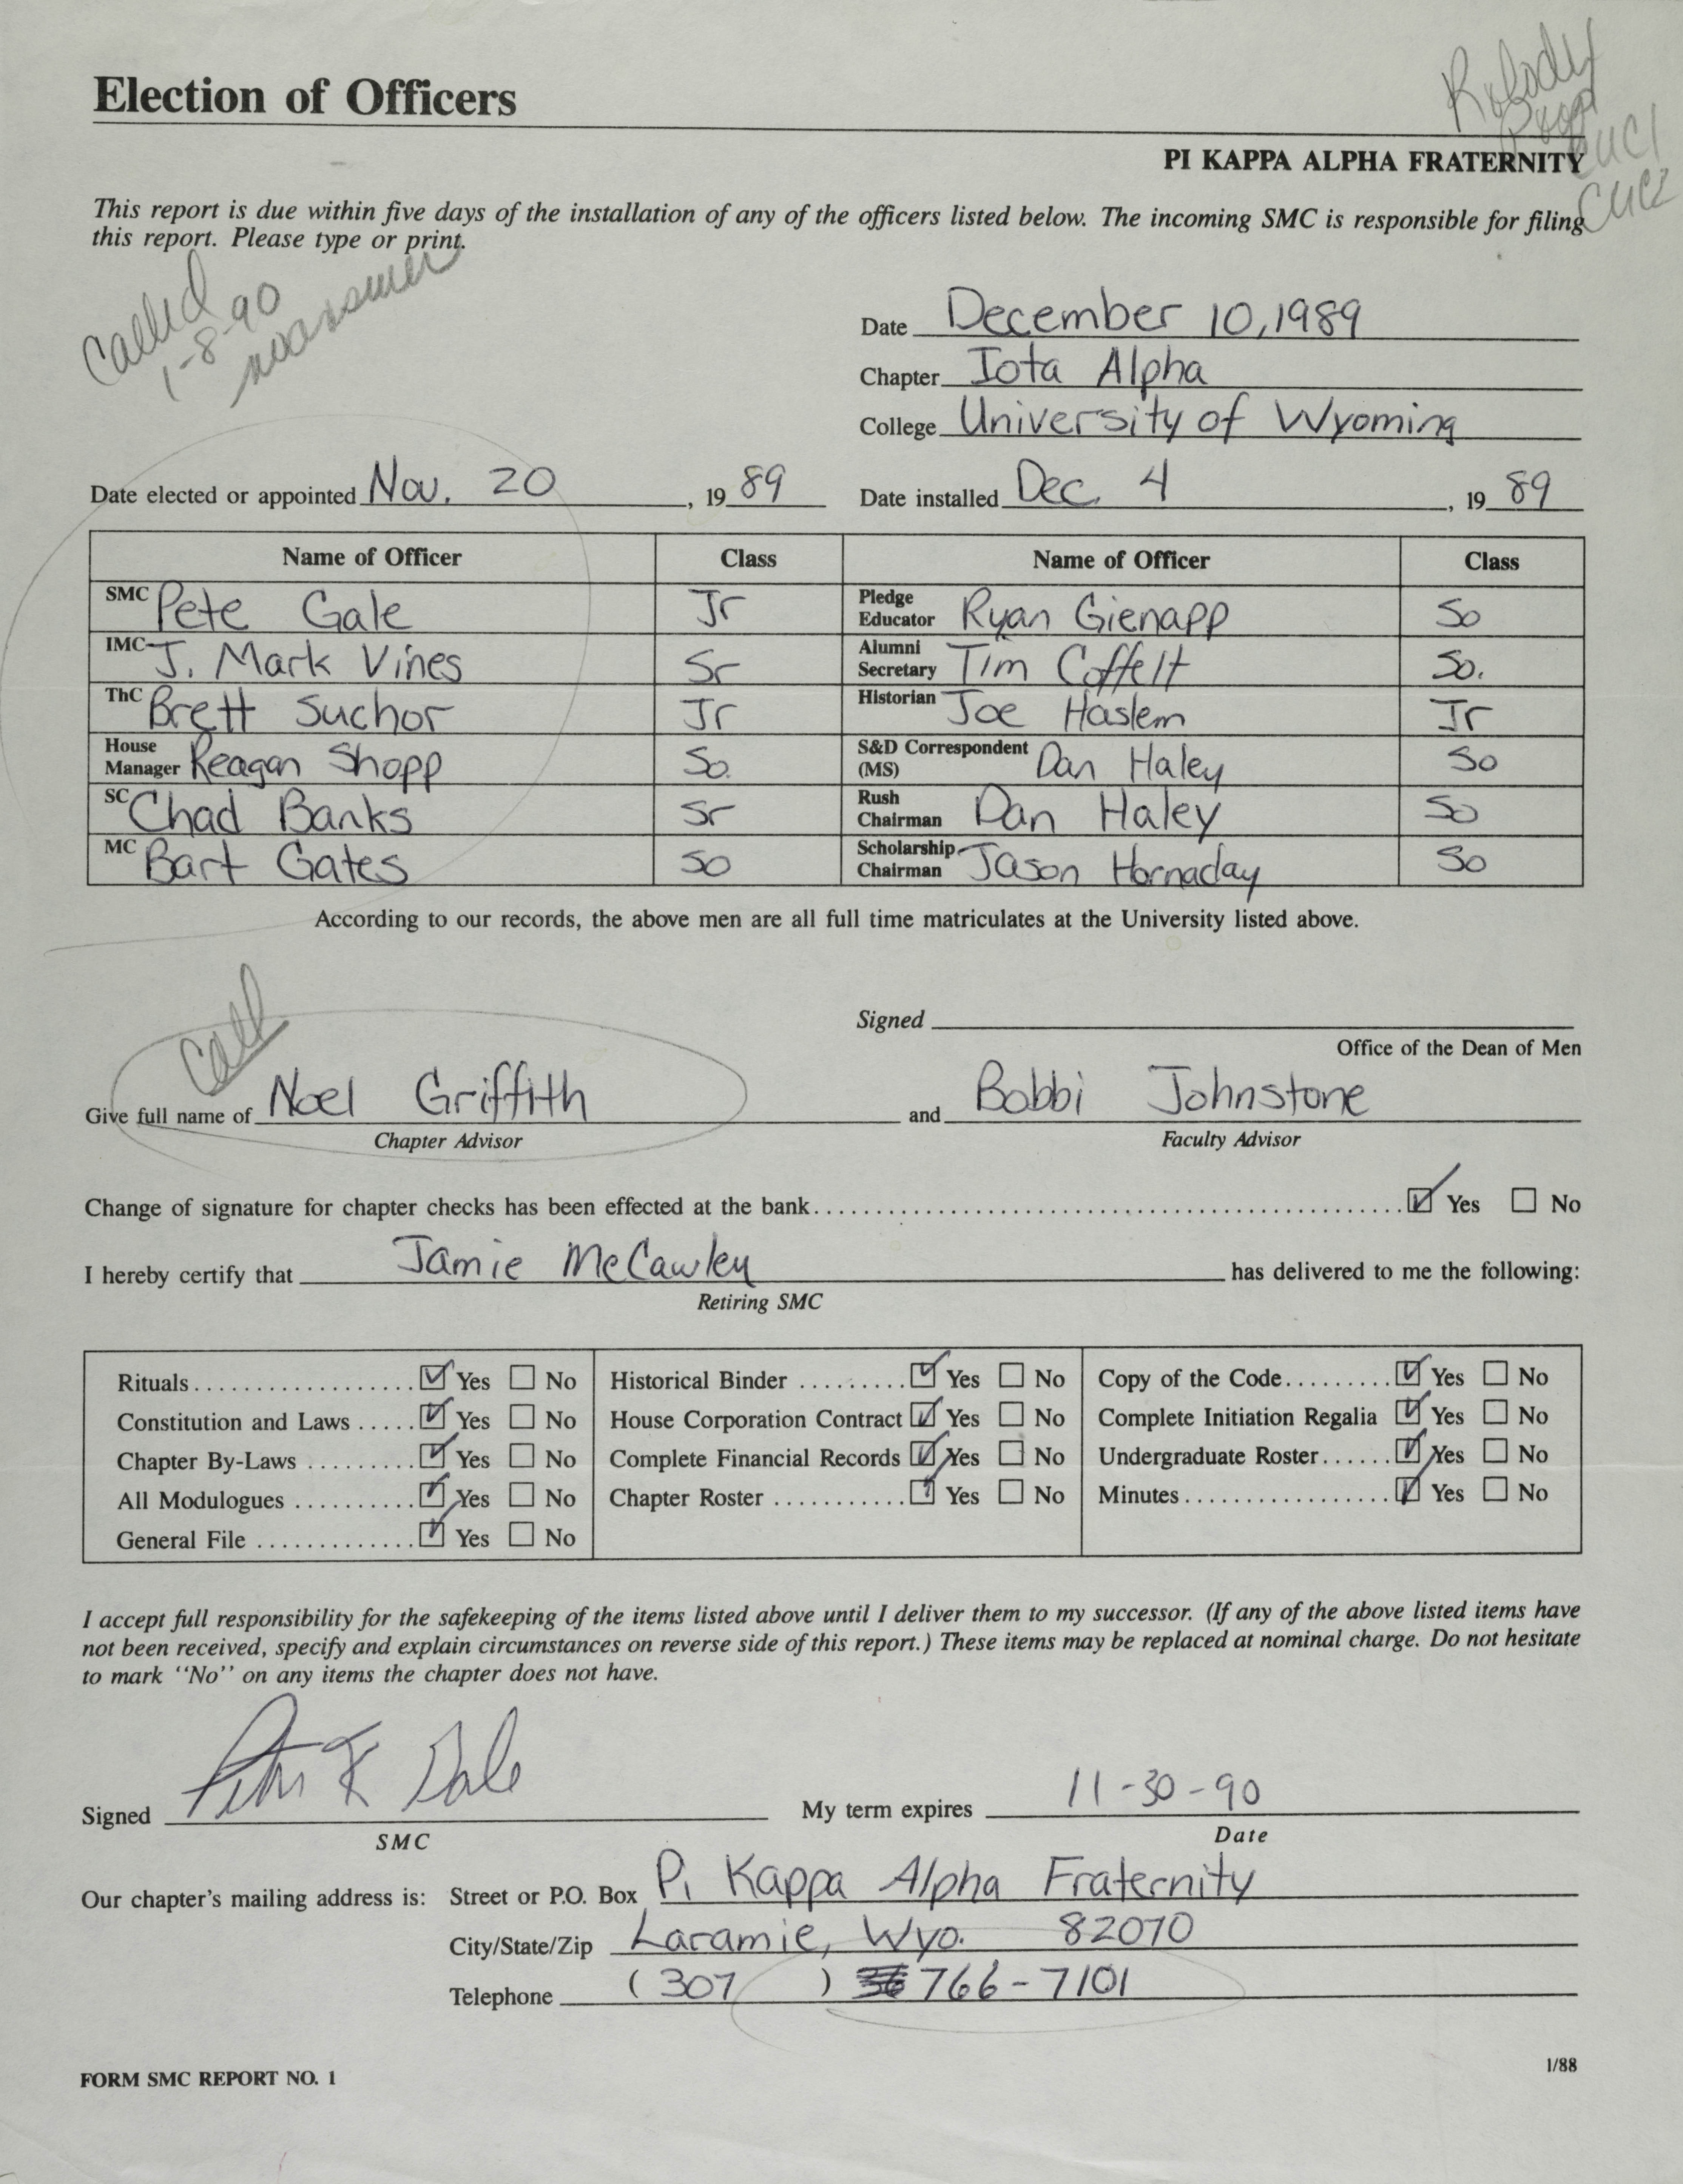 Election of Officers
PI KAPPA ALPHA FRATERNITY
CUC2
This report is due within five days of the installation of any of the officers listed below. The incoming SMC is responsible for filing
this report. Please type or print.
Called
1-8-90
no answer
Date December 10, 1989
Chapter Iota Alpha
College University of Wyoming
Date elected or appointed Nov. 20, 19 89 Date installed Dec. 4, 19 89
Name of Officer Class Name of Officer Class
SMC Pete Gale Jr Pledge Educator Ryan Gienapp So
IMC J. Mark Vines Sr Alumni Secretary Tim Coffelt So.
ThC Brett Suchor Jr Historian Joe Haslem Jr
House Manager Reagan Shopp So. S&D Correspondent (MS) Dan Haley So
SC Chad Banks Sr Rush Chairman Dan Haley So
MC Bart Gates So Scholarship Chairman Jason Hornaday So
According to our records, the above men are all full time matriculates at the University listed above.
Signed
Office of the Dean of Men
Call
Give full name of Noel Griffith and Bobbi Johnstone
Chapter Advisor Faculty Advisor
Change of signature for chapter checks has been effected at the bank ☑ Yes ☐ No
I hereby certify that Jamie McCawley has delivered to me the following:
Retiring SMC
Rituals ☑ Yes ☐ No Historical Binder ☑ Yes ☐ No Copy of the Code ☑ Yes ☐ No
Constitution and Laws ☑ Yes ☐ No House Corporation Contract ☑ Yes ☐ No Complete Initiation Regalia ☑ Yes ☐ No
Chapter By-Laws ☑ Yes ☐ No Complete Financial Records ☑ Yes ☐ No Undergraduate Roster ☑ Yes ☐ No
All Modulogues ☑ Yes ☐ No Chapter Roster ☑ Yes ☐ No Minutes ☑ Yes ☐ No
General File ☑ Yes ☐ No
I accept full responsibility for the safekeeping of the items listed above until I deliver them to my successor. (If any of the above listed items have
not been received, specify and explain circumstances on reverse side of this report.) These items may be replaced at nominal charge. Do not hesitate
to mark "No" on any items the chapter does not have.
Signed Peter K Gale My term expires 11-30-90
SMC Date
Our chapter's mailing address is: Street or P.O. Box Pi Kappa Alpha Fraternity
City/State/Zip Laramie, Wyo. 82070
Telephone (307) 766-7101
FORM SMC REPORT NO. 1 1/88